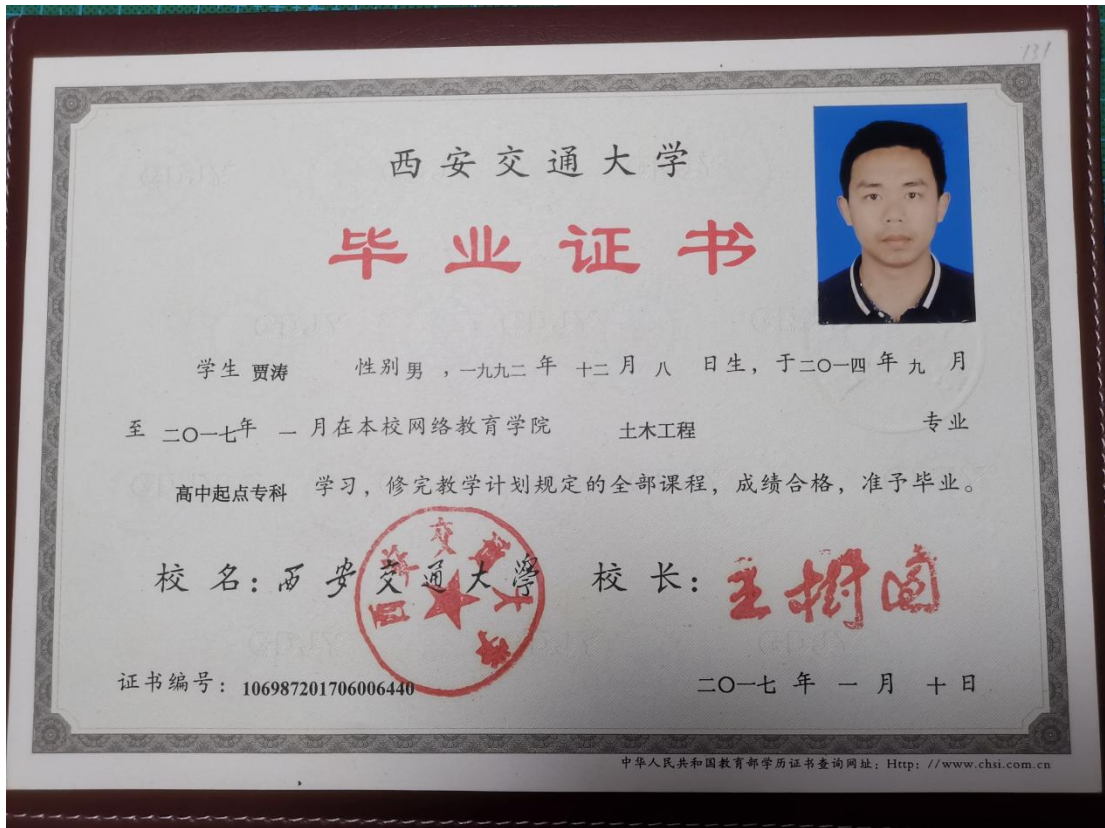 131
西安交通大学
毕业证书
学生 贾涛 性别 男 ，一九九二 年 十二 月 八 日生，于二〇一四 年 九 月
至 二〇一七年 一 月在本校网络教育学院 土木工程 专业
高中起点专科 学习，修完教学计划规定的全部课程，成绩合格，准予毕业。
校 名：西安交通大學 校 长：王树国
西安交通大學
证书编号：106987201706006440 二〇一七 年 一 月 十 日
中华人民共和国教育部学历证书查询网址：Http：//www.chsi.com.cn